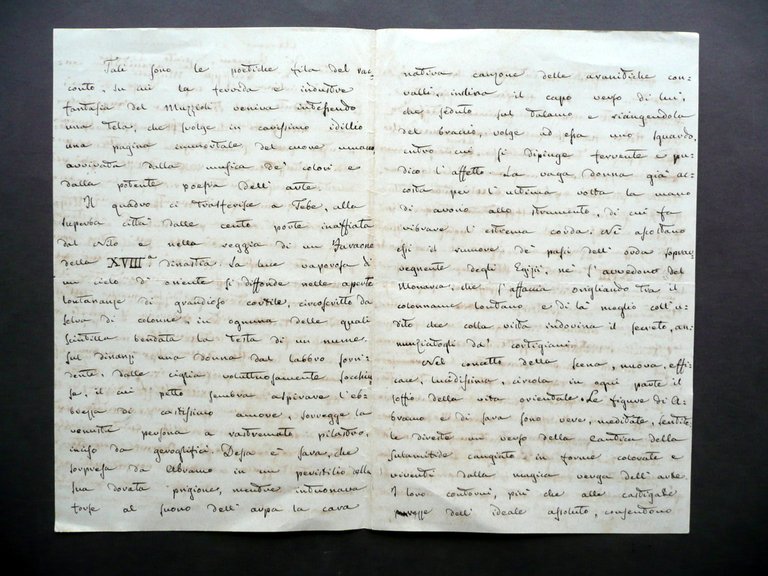 Tali sono le poetiche fila del rac-
conto, su cui la fervida e industre
fantasia del Muzzioli veniva intessendo
una tela, che svolge in carissimo idillio
una pagina immortale del cuore umano
avvivata dalla musica de' colori e
dalla potente poesia dell'arte.
Il quadro ci trasferisce a Tebe, alla
superba città dalle cento porte inaffiata
dal Nilo e nella reggia di un Faraone
della XVIII.a dinastia. La luce vaporosa di
un cielo d'oriente si diffonde nelle aperte
lontananze di grandioso cortile, circoscritto da
selva di colonne, in ognuna delle quali
scintilla bendata la testa di un nume.
Sul dinanzi una donna dal labbro sorri-
dente, dalle ciglia voluttuosamente socchiu
se, il cui petto sembra aspirare l'eb-
brezza di castissimo amore, sorregge la
venusta persona a rastremato pilastro,
inciso da geroglifici. Dessa è Sara, che
sorpresa da Abramo in un peristilio della
sua dorata prigione, mentre intuonava
forse al suono dell'arpa la cara
nativa canzone delle avanitiche con-
valli, inclina il capo verso di lui,
che seduto sul talamo e ricingendola
del braccio, volge ad essa uno sguardo,
entro cui si dipinge fervente e pu-
dico l'affetto. La vaga donna già ac-
costa per l'ultima volta la mano
di avorio allo strumento, di cui fa
vibrare l'estrema corda. Nè ascoltano
essi il rumore de' passi dell'orda soprav
vegnente degli Egizii, nè s'avvedono del
Monarca, che s'affaccia origliando tra il
colonname lontano e di là meglio coll'u-
dito che colla vista indovina il secreto, an-
nunciatogli da' cortigiani.
Nel concetto della scena, nuova, effi-
cace, lucidissima, circola in ogni parte il
soffio della vita orientale. Le figure di A-
bramo e di Sara sono vere, meditate, sentite,
le direste un verso della Cantica della
sulamitide cangiato in forme colorate e
viventi dalla magica verga dell'arte.
I loro contorni, più che alle castigate
dell'ideale assoluto, consentono